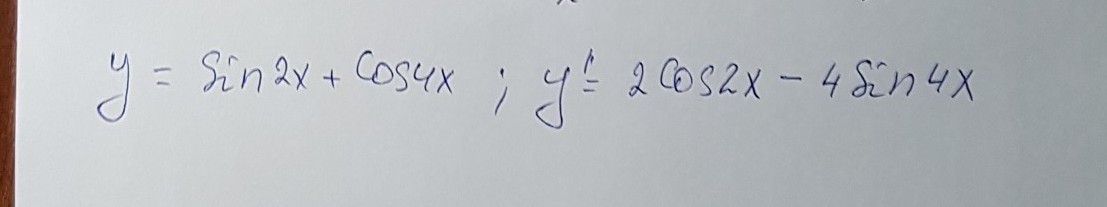 y = Sin2x + Cos4x ; y' = 2Cos2x - 4Sin4x